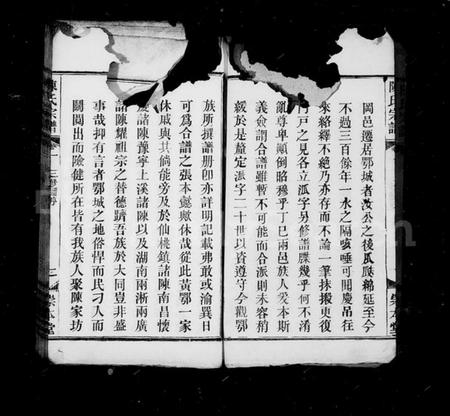 岡邑遷居鄂城者汝公之後瓜瓞綿延至今
不過三百餘年一水之隔咳唾可聞慶吊往
來絡繹不絕乃亦存而不論一筆抹撥更復
門戸之見各立派字另修譜牒幾乎何不淆
亂尊卑顛倒昭穆乎丁巳兩邑族人爰本斯
義僉謂合譜雖暫不可能而合派則未容稍
緩於是釐定派字二十世以資遵守今觀鄂
族所撰譜册卽亦詳明記載弗敢或渝異日
可為合譜之張本歟歟休哉從此黃鄂一家
休戚與共倘能旁及於仙桃鎮諸陳南昌懷
慶諸陳豫寧上溪諸陳以及湖南兩淅兩廣
諸陳耀祖宗之替德躋吾族於大同豈非盛
事哉抑有言者鄂城之地俗悍而民刁入而
閭閻出而險健所在皆有我族人聚陳家坊
陳氏宗譜
崇本堂